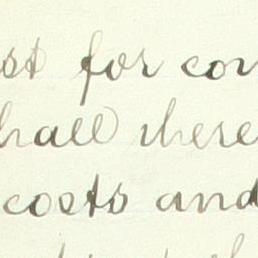 st for con
hall there
costs and